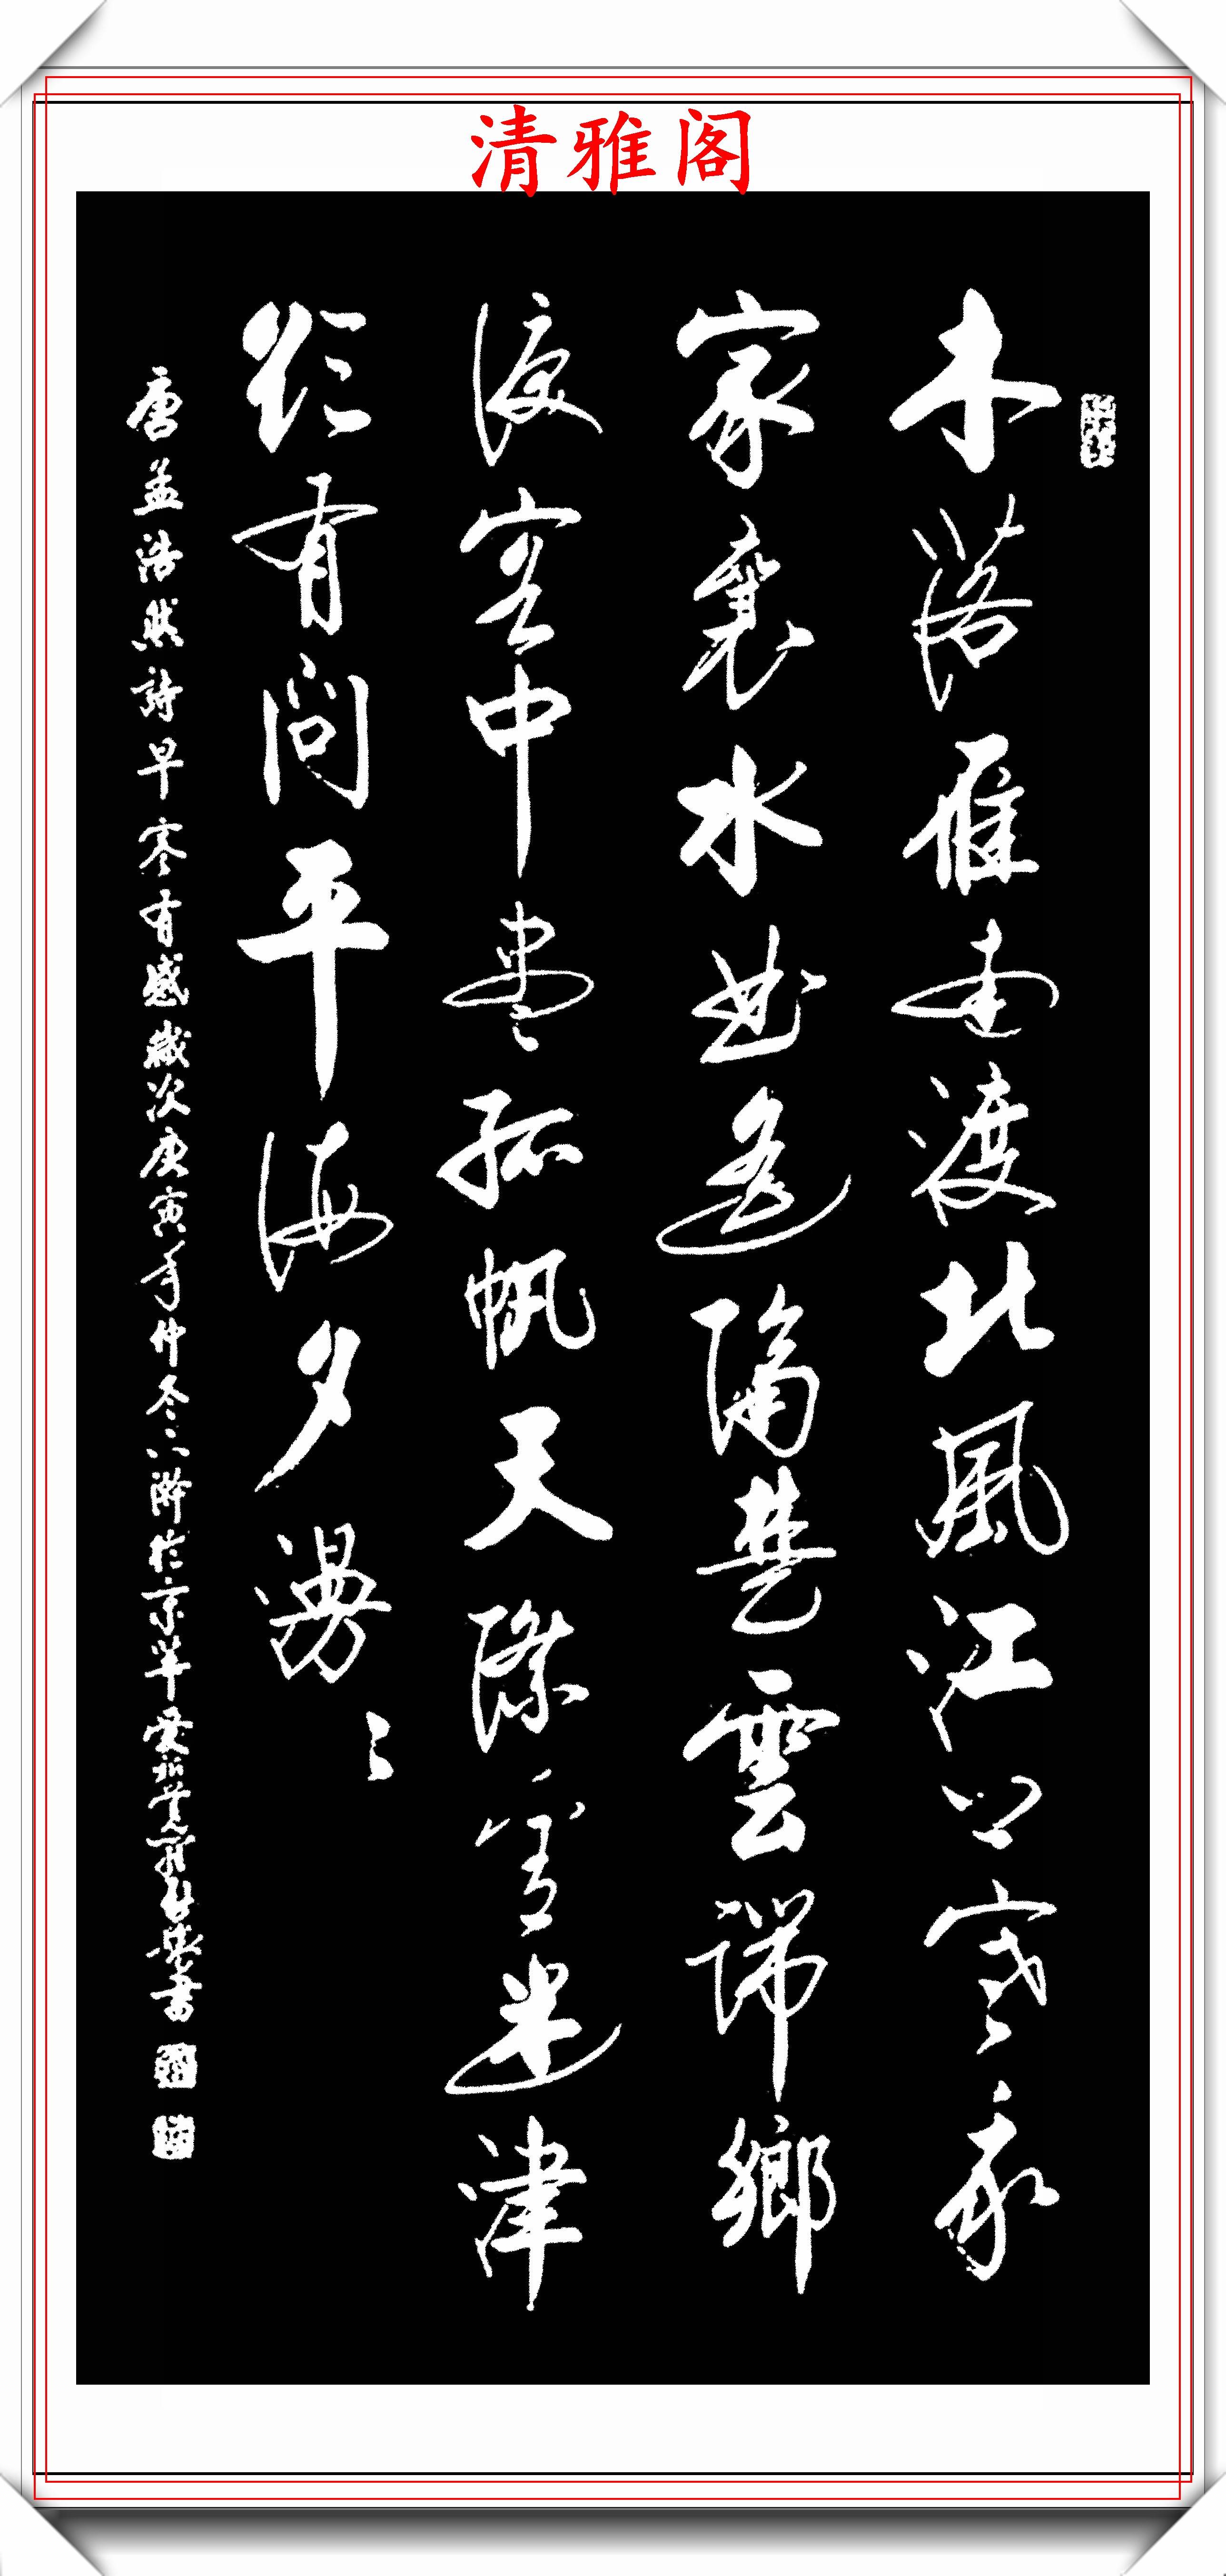 清雅阁
木落雁南渡北風江上寒我
家襄水曲遙隔楚雲端鄉
淚客中盡孤帆天際看迷津
欲有問平海夕漫々
唐孟浩然詩早寒有感歲次庚寅年仲冬下澣於京華愛新覺羅書